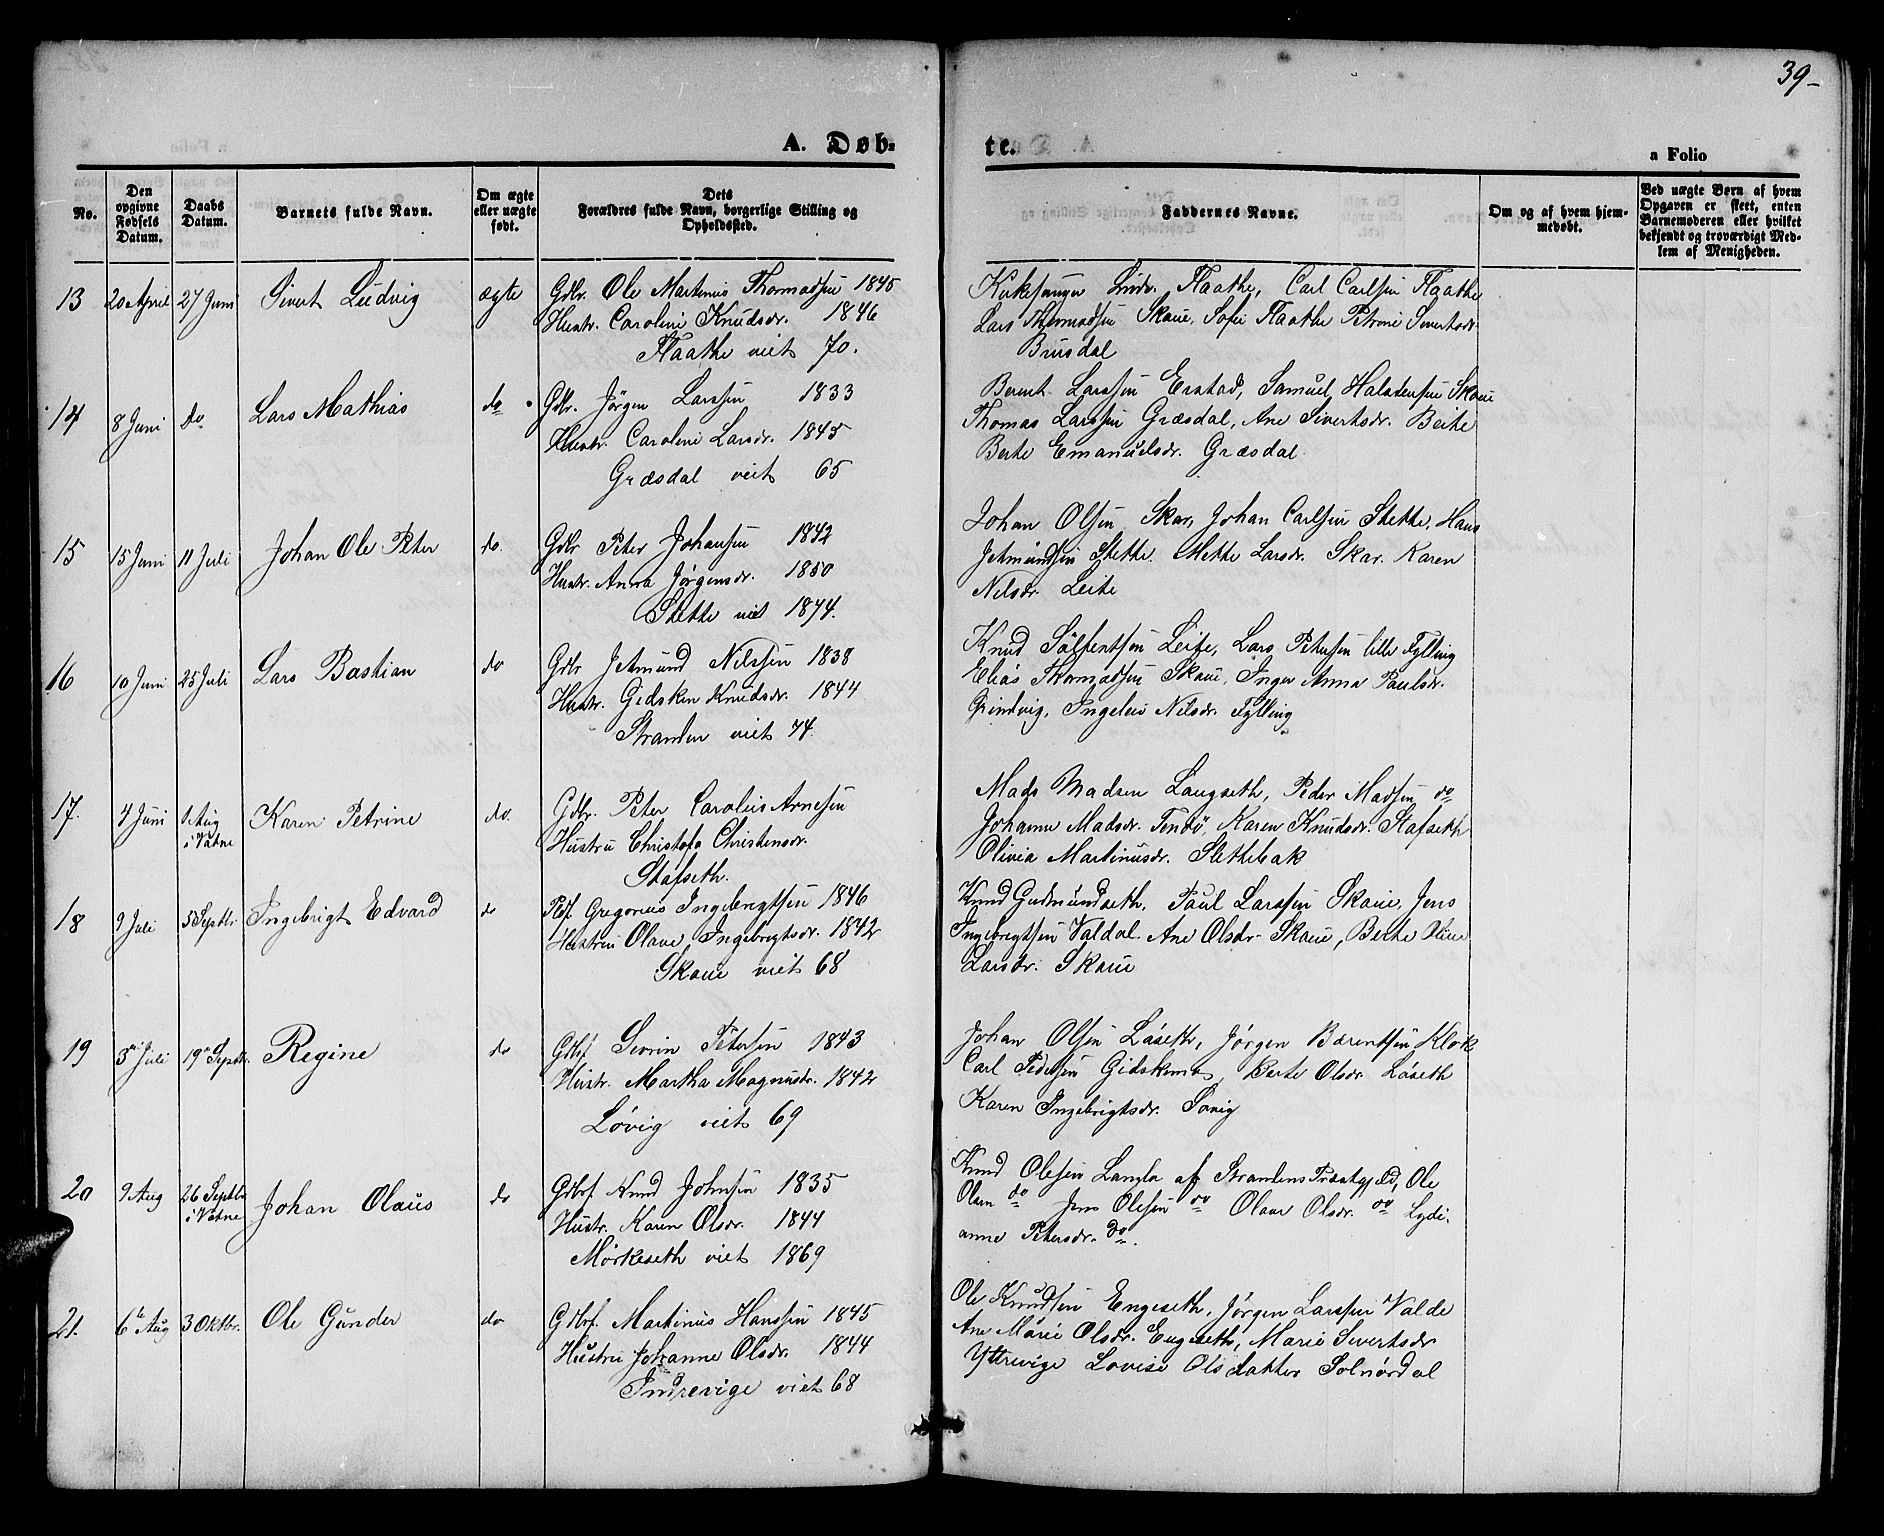 39-
A. Døb-
te.
a Folio
No.
Den
opgivne
Fødsels
Datum.
Daabs
Datum.
Barnets fulde Navn.
Om ægte
eller uægte
født.
Dets
Forældres fulde Navn, borgerlige Stilling og
Opholdssted.
Faddernes Navne.
Om og af hvem hjem-
medøbt.
Ved uægte Børn af hvem
Opgaven er skeet, enten
Barnemoderen eller hvilket
bekjendt og troværdigt Med-
lem af Menigheden.
13 20 April 27 Juni Sivert Ludvig ægte Gdbr. Ole Martinus Thomassen 1845
Hustr. Caroline Knudsdr. 1846
Flaathe viet 70.
Kirkesanger Flaathe, Carl Carlsen Flaathe
Lars Thomassen Skaue, Sofie Flaathe Petrine Sivertsdr.
Brusdal
14 8 Juni do Lars Mathias do Gdbr. Jørgen Larssen 1833
Hustr. Caroline Larsdr. 1845
Græsdal viet 65
Bernt Larssen Erstad, Samuel Halstensen Skaue
Thomas Larssen Græsdal, Ane Sivertsdr. Beite
Berte Emanuelsdr. Græsdal
15 15 Juni 11 Juli Johan Ole Peter do. Gdbr Peter Johansen 1842
Hustr. Anna Jørgensdr. 1850
Stette viet 1874.
Johan Olsen Skar, Johan Carlsen Stette, Hans
Jetmundsen Stette. Mette Larsdr. Skar. Karen
Nilsdr. Leite
16 10 Juni 25 Juli Lars Bastian do Gdbr Jetmund Nilssen 1838
Hustr. Gidsken Knudsdr. 1844
Stranden viet 74.
Knud Sølfentsen Leite, Lars Petersen lille Fylling
Elias Thomassen Skaue, Inger Anna Paulsdr.
Grindvig, Ingeleu Nilsdr. Fylling
17. 4 Juni 1 Aug
i Vatne
Karen Petrine do. Gdbr. Peter Carolus Arnesen
Hustru Christofa Christensdr.
Stafseth.
Mads Madsen Langseth, Peder Madsen do
Johanne Madsdr. Tennø, Karen Knudsdr. Stafseth
Olivia Martinusdr. Slettebak
18 9 Juli 5 Septbr Ingebrigt Edvard do Gregorius Ingebrigtsen 1846
Hustru Olave Ingebrigtsdr. 1842
Skaue viet 68
Knud Gudmundseth, Paul Larssen Skaue, Jens
Ingebrigtsen Valdal. Ane Olsdr. Skaue, Berte Oline
Larsdr. Skaue
19 3 Juli 19 Septbr. Regine do Gdbf. Sivrin Petersen 1843
Hustr. Martha Magnusdr. 1842
Løvig viet 69
Johan Olsen Løseth, Jørgen Bærentsen Klok
Carl Pedersen Gidskemo, Berte Olsdr. Løseth
Karen Ingebrigtsdr. Søvig
20 9 Aug 26 Septbr
i Vatne
Johan Olaus do Gdbrf. Knud Johnsen 1835
Hustr. Karen Olsdr. 1844
Mørkeseth viet 1869
Knud Olesen Langlo af Strandens Præstegjeld, Ole
Olsen do Jens Olesen do Olave Olsdr. do Lydi-
anne Petersdr. do.
21. 6te Aug 3 Oktbr. Ole Gunder do Gdbrf. Martinus Hanssen 1845
Hustru Johanne Olsdr. 1844
Indrevige viet 68
Ole Knudsen Engeseth, Jørgen Larssen Valde
Ane Marie Olsdr. Engseth, Marie Sivertsdr
Ytrevige Lovise Olsdatter Solnørdal